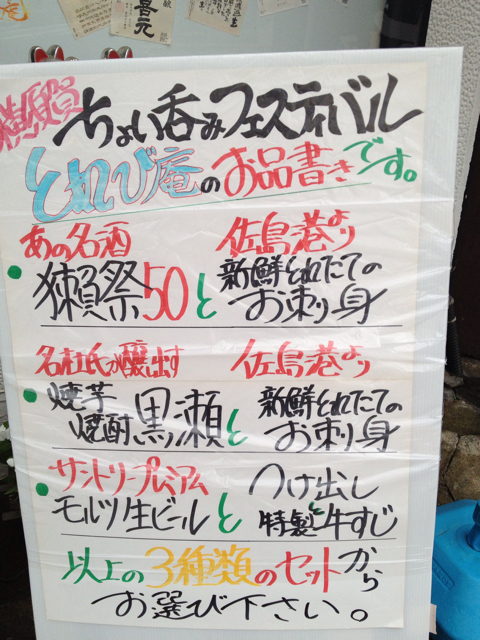 喜元
横須賀
ちょい呑みフェスティバル
とれび庵のお品書きです。
あの名酒 佐島港より
獺祭50と 新鮮とれたての
お刺り身
名杜氏が醸出す 佐島港より
焼芋
焼酎 黒瀬と 新鮮とれたての
お刺り身
サントリープレミアム つけ出し
モルツ生ビールと と
特製牛すじ
以上の3種類のセットから
お選び下さい。